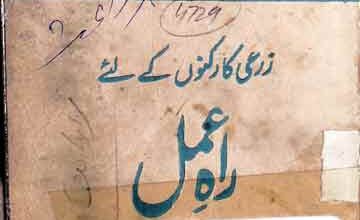 4729
زرعی کارکنوں کے لئے
راہِ عمل